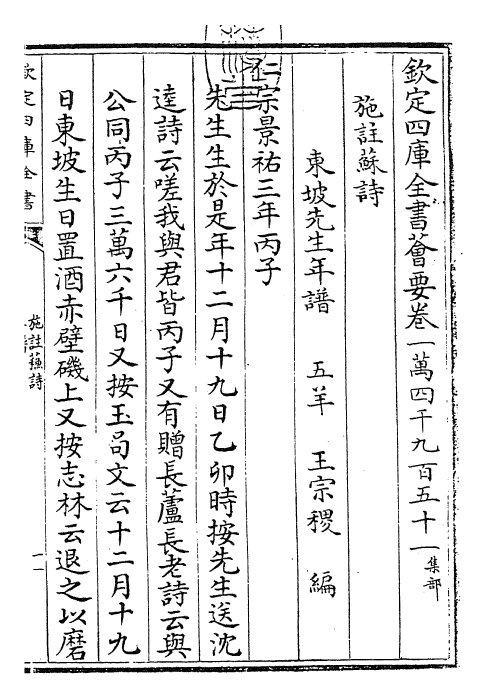 欽定四庫全書薈要卷一萬四千九百五十一集部
施註蘇詩
東坡先生年譜 五羊 王宗稷 編
仁宗景祐三年丙子
先生生於是年十二月十九日乙卯時按先生送沈
逵詩云嗟我與君皆丙子又有贈長蘆長老詩云與
公同丙子三萬六千日又按玉局文云十二月十九
日東坡生日置酒赤壁磯上又按志林云退之以磨
欽定四庫全書
施註蘇詩
一